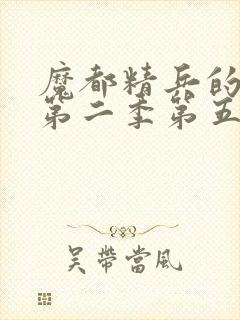 魔都精兵的
第二季第五
吴带當風